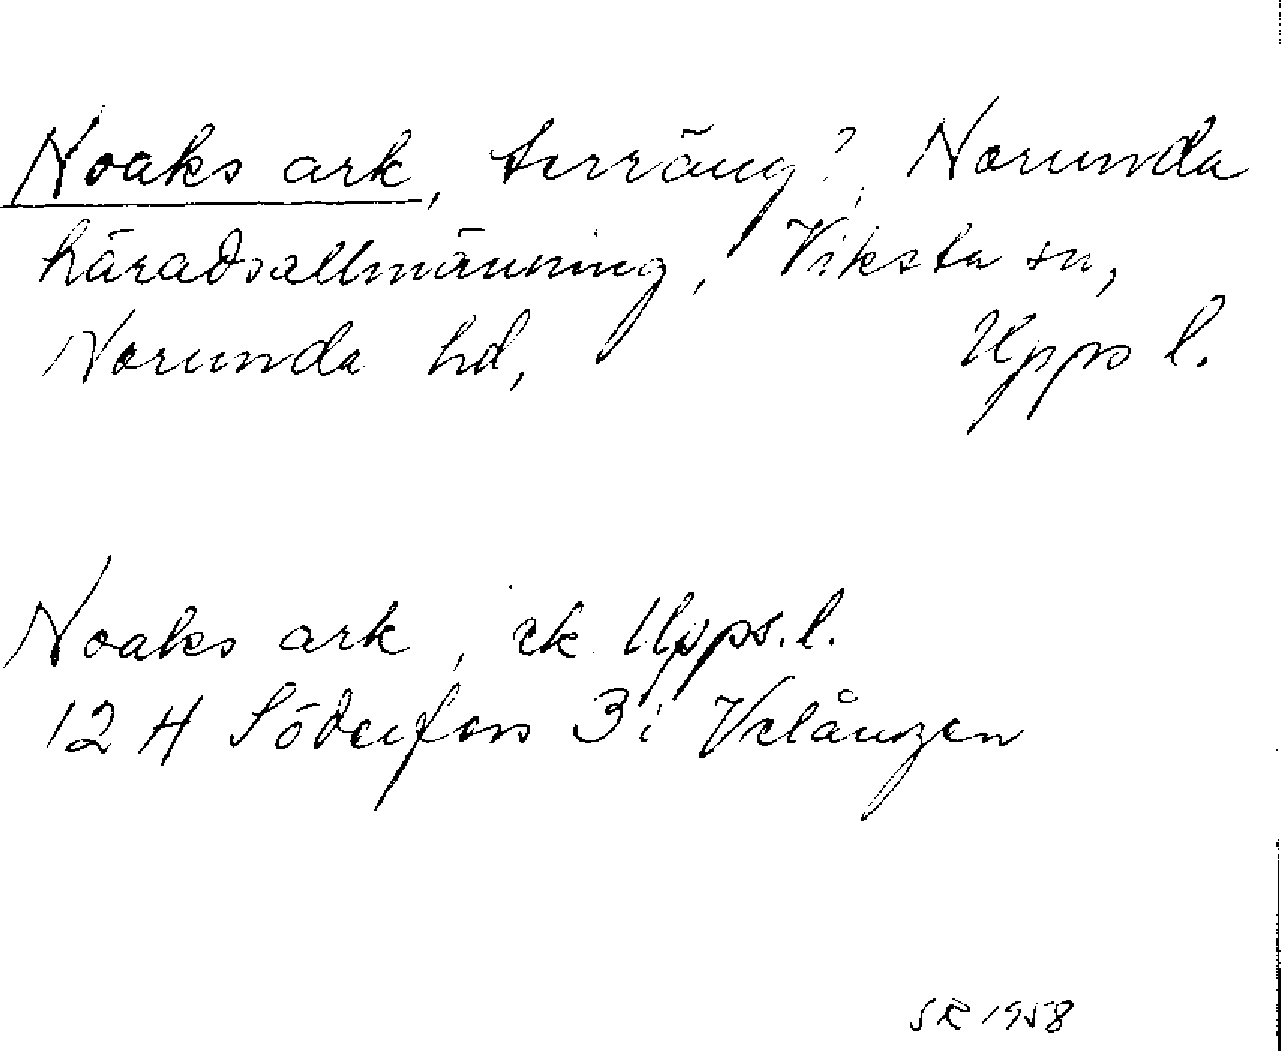 Noaks ark, terräng?, Norunda
häradsallmänning, Viksta sn,
Norunda hd, Upps l.
Noaks ark, ek Upps. l.
12 H Söderfors 3 i Velången
SR 1958